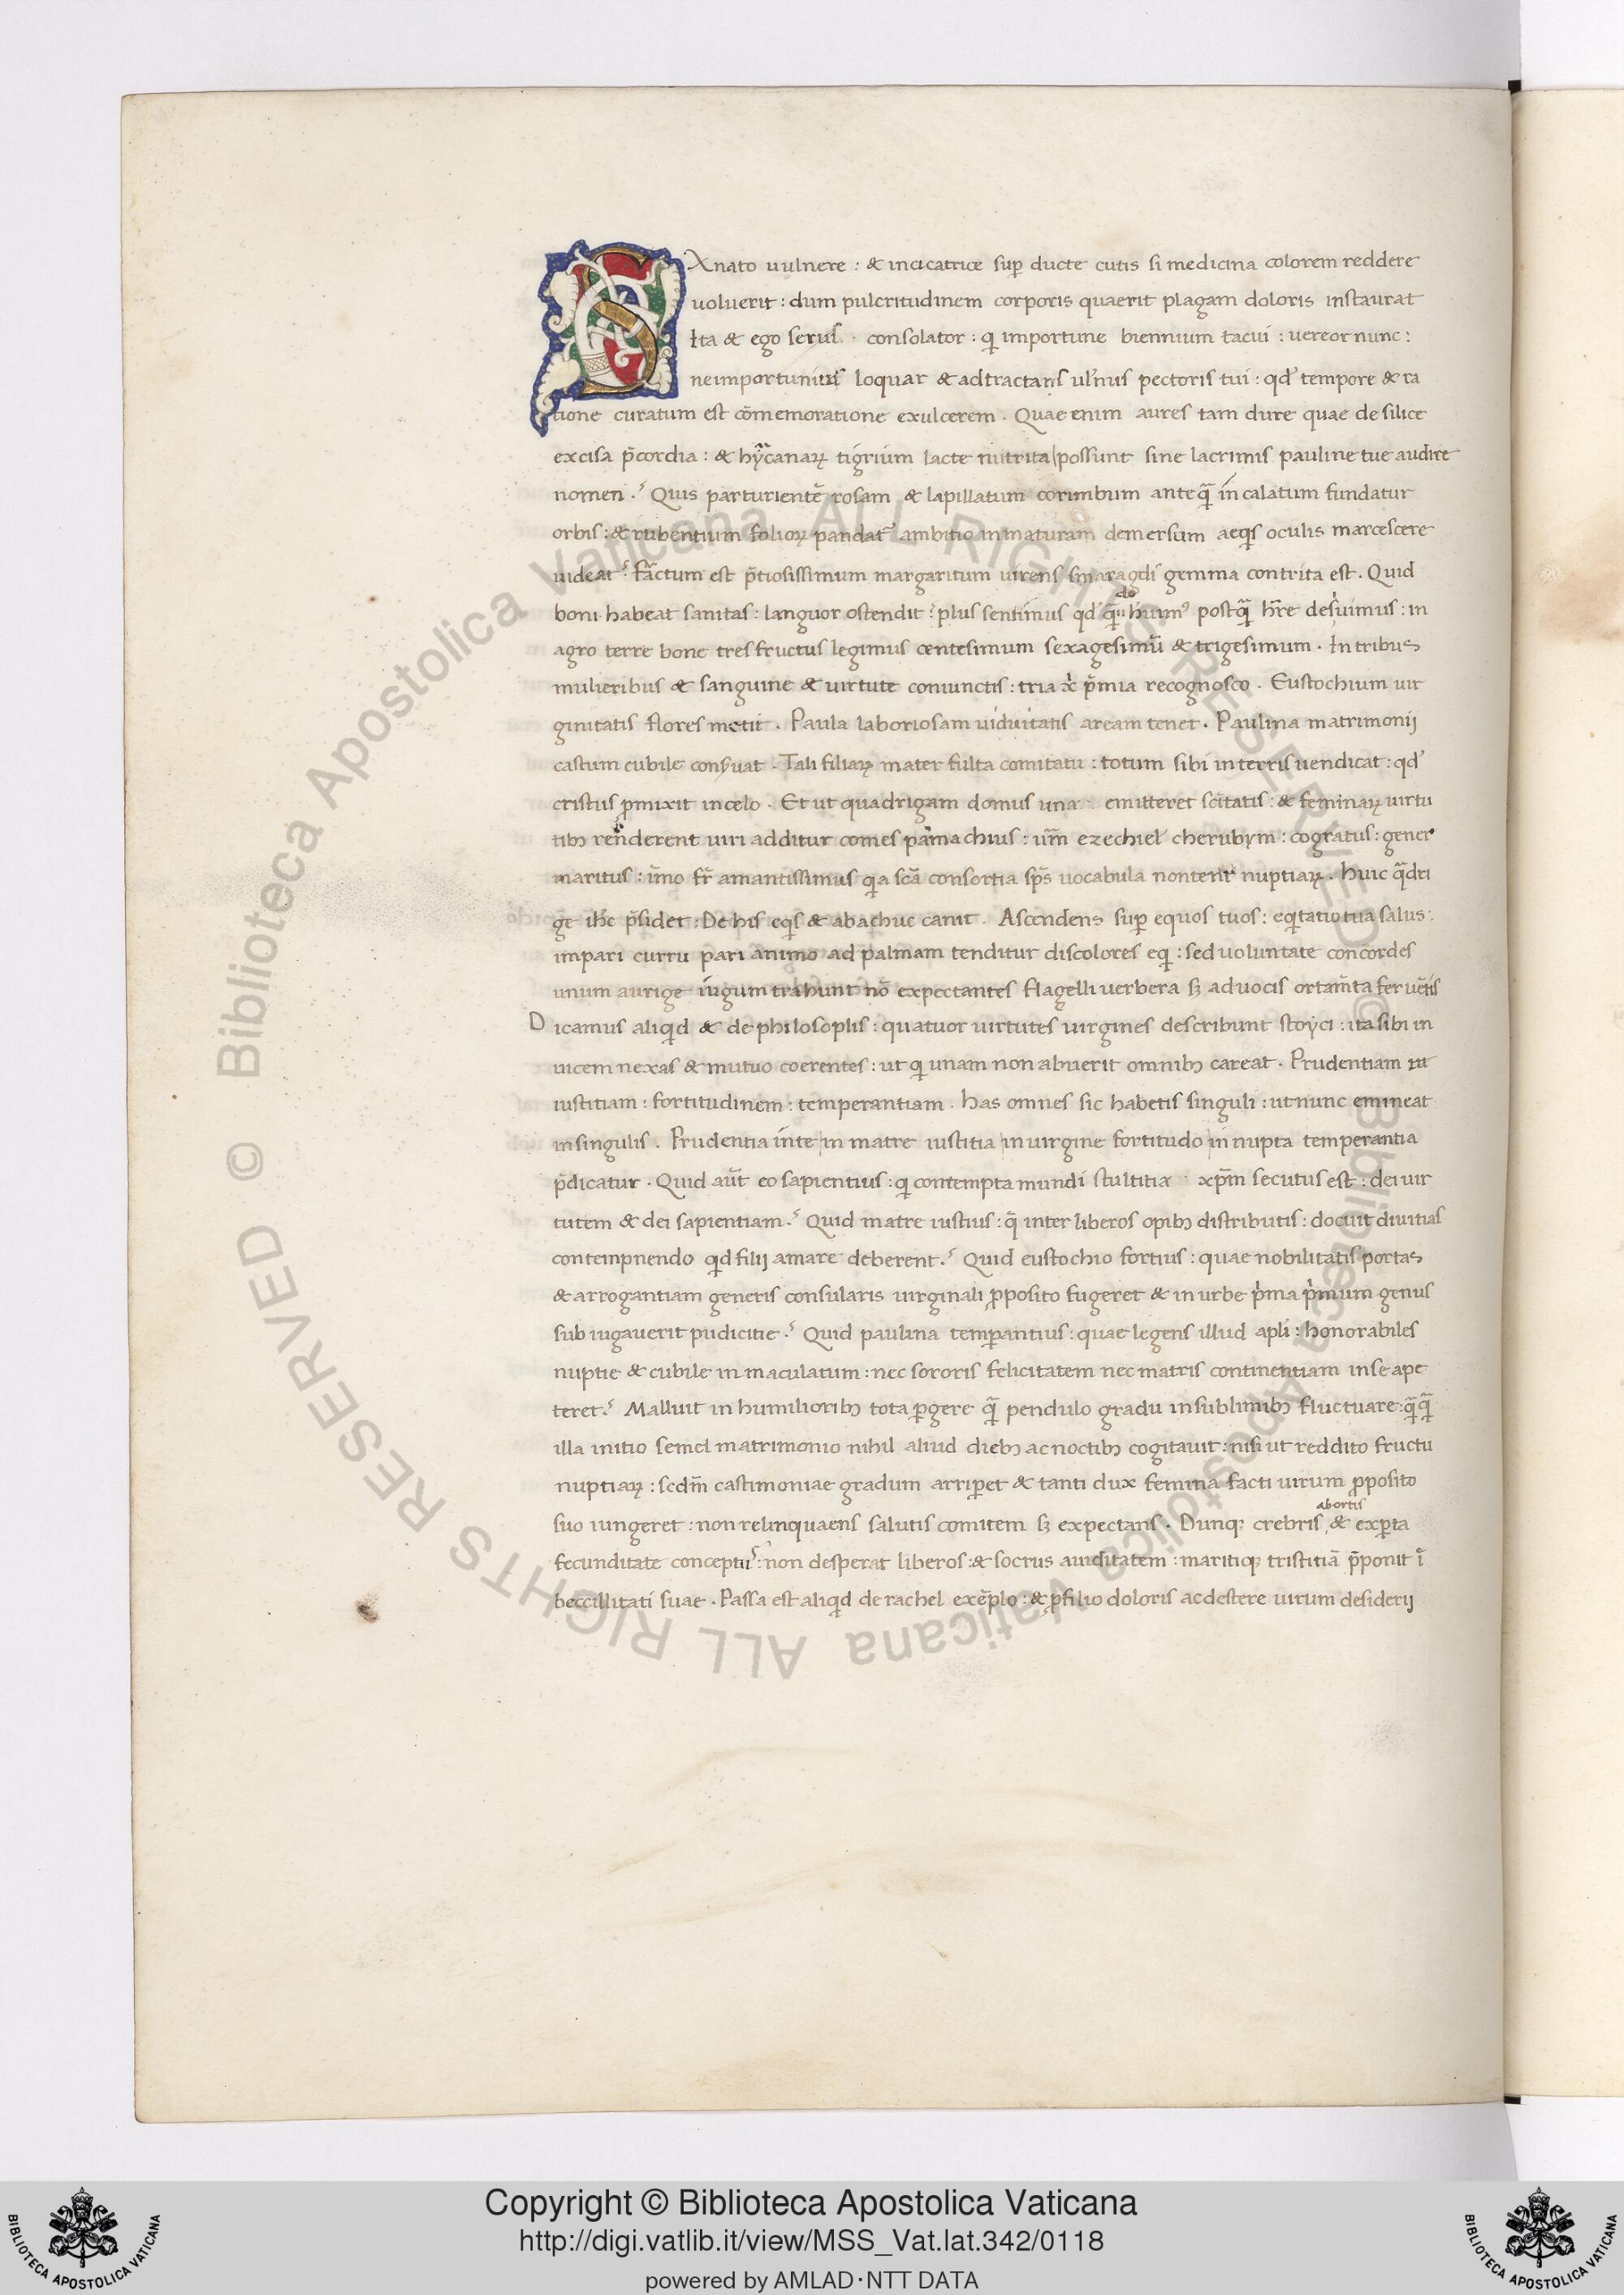 SAnato uulnere : & incicatrice suꝑ ducte cutis si medicina colorem reddere
uoluerit : dum pulcritudinem corporis quaerit plagam doloris instaurat
Ita & ego serus . consolator : qi importune biennium tacui : uereor nunc :
neimportunius loquar & adtractans ul'nus pectoris tui : qd' tempore & ra
tione curatum est cōmemoratione exulcerem . Quae enim aures tam dure quae de silice
excisa p̄cordia : & hyrcanaꝝ tigrium lacte nutrita possunt sine lacrimis pauline tue audire
nomen . Quis parturientē rosam & lapillatum corimbum anteqᷓ in calatum fundatur
orbis : & rubentium folioꝝ pandat᷑ ambitio inmaturam demersum aeqis oculis marcescere
uideat : fractum est p̄tiosissimum margaritum uirens smaragdi gemma contrita est . Quid
boni habeat sanitas : languor ostendit : plus sentimus qd' habuim᷒ postqᷓ hr̄e desiuimus : in
agro terre bone tres fructus legimus centesimum sexagesimū & trigesimum . In tribus
mulieribus & sanguine & uirtute coniunctis : tria xi p̄mia recognosco . Eustochium uir
ginitatis flores metit . Paula laboriosam uiduitatis aream tenet . Paulina matrimonij
castum cubile conẜuat . Tali filiaꝝ mater fulta comitatu : totum sibi interris uendicat : qd'
cristus ꝓmixit incelo . Et ut quadrigam domus una emitteret scītatis : & feminaꝝ uirtu
tibꝫ renderent uiri additur comes pāmachius : um̄ ezechiel cherubym : cogratus : gener
maritus : īmo fr̄ amantissimus qia scā consortia sp̄s uocabula nontenr̄ nuptiaꝝ . huic qᷓdri
ge ih̄c p̄sidet : De his eqis & abachuc canit . Ascendens suꝑ equos tuos : eqitatio tua salus :
impari curru pari animo ad palmam tenditur discolores eqi : sed uoluntate concordes
unum aurige iugum trahunt nō expectantes flagelli uerbera sꝫ aduocis ortam̄ta feruētis
Dicamus aliqid & de philosophis : quatuor uirtutes uirgines describunt stoyci : ita sibi in
uicem nexas & mutuo coerentes : ut qi unam non abuerit omnibꝫ careat . Prudentiam
iustitiam : fortitudinem : temperantiam . has omnes sic habetis singuli : ut nunc emineat
insingulis . Prudentia inte in matre iustitia in uirgine fortitudo in nupta temperantia
p̄dicatur . Quid aūt eo sapientius : qi contempta mundi stultitia xp̄m secutus est : dei uir
tutem & dei sapientiam . Quid matre iustius : q̄ inter liberos opibꝫ distributis : docuit diuitias
contempnendo qid filij amare deberent . Quid eustochio fortius : quae nobilitatis portas
& arrogantiam generis consularis uirginali ꝓposito fugeret & in urbe pima pimum genus
sub iugauerit pudicitie . Quid paulina temꝑantius : quae legens illud apl'i : honorabiles
nuptie & cubile in maculatum : nec sororis felicitatem nec matris continentiam inse ape
teret . Malluit in humilioribꝫ tota ꝑgere qᷓ pendulo gradu insublimibꝫ fluctuare : qᷓqᷓ
illa initio semel matrimonio nihil aliud diebꝫ ac noctibꝫ cogitauit : nisi ut reddito fructu
nuptiaꝝ : scdm̄ castimoniae gradum arriꝑet & tanti dux femina facti uirum ꝓposito
suo iungeret : non relinquaens salutis comitem sꝫ expectans . Dunqꝫ crebris abortis & exꝑta
fecunditate conceptu : non desperat liberos : & socrus auiditatem : maritiqꝫ tristitiā p̄ponit ī
beccillitati suae . Passa est aliqid de rachel exēplo : & ꝓ filio doloris ac destere uirum desiderij
Copyright © Biblioteca Apostolica Vaticana
http://digi.vatlib.it/view/MSS_Vat.lat.342/0118
powered by AMLAD·NTT DATA
BIBLIOTECA APOSTOLICA VATICANA
BIBLIOTECA APOSTOLICA VATICANA
Biblioteca Apostolica Vaticana ALL RIGHTS RESERVED ©
Biblioteca Apostolica Vaticana ALL RIGHTS RESERVED ©